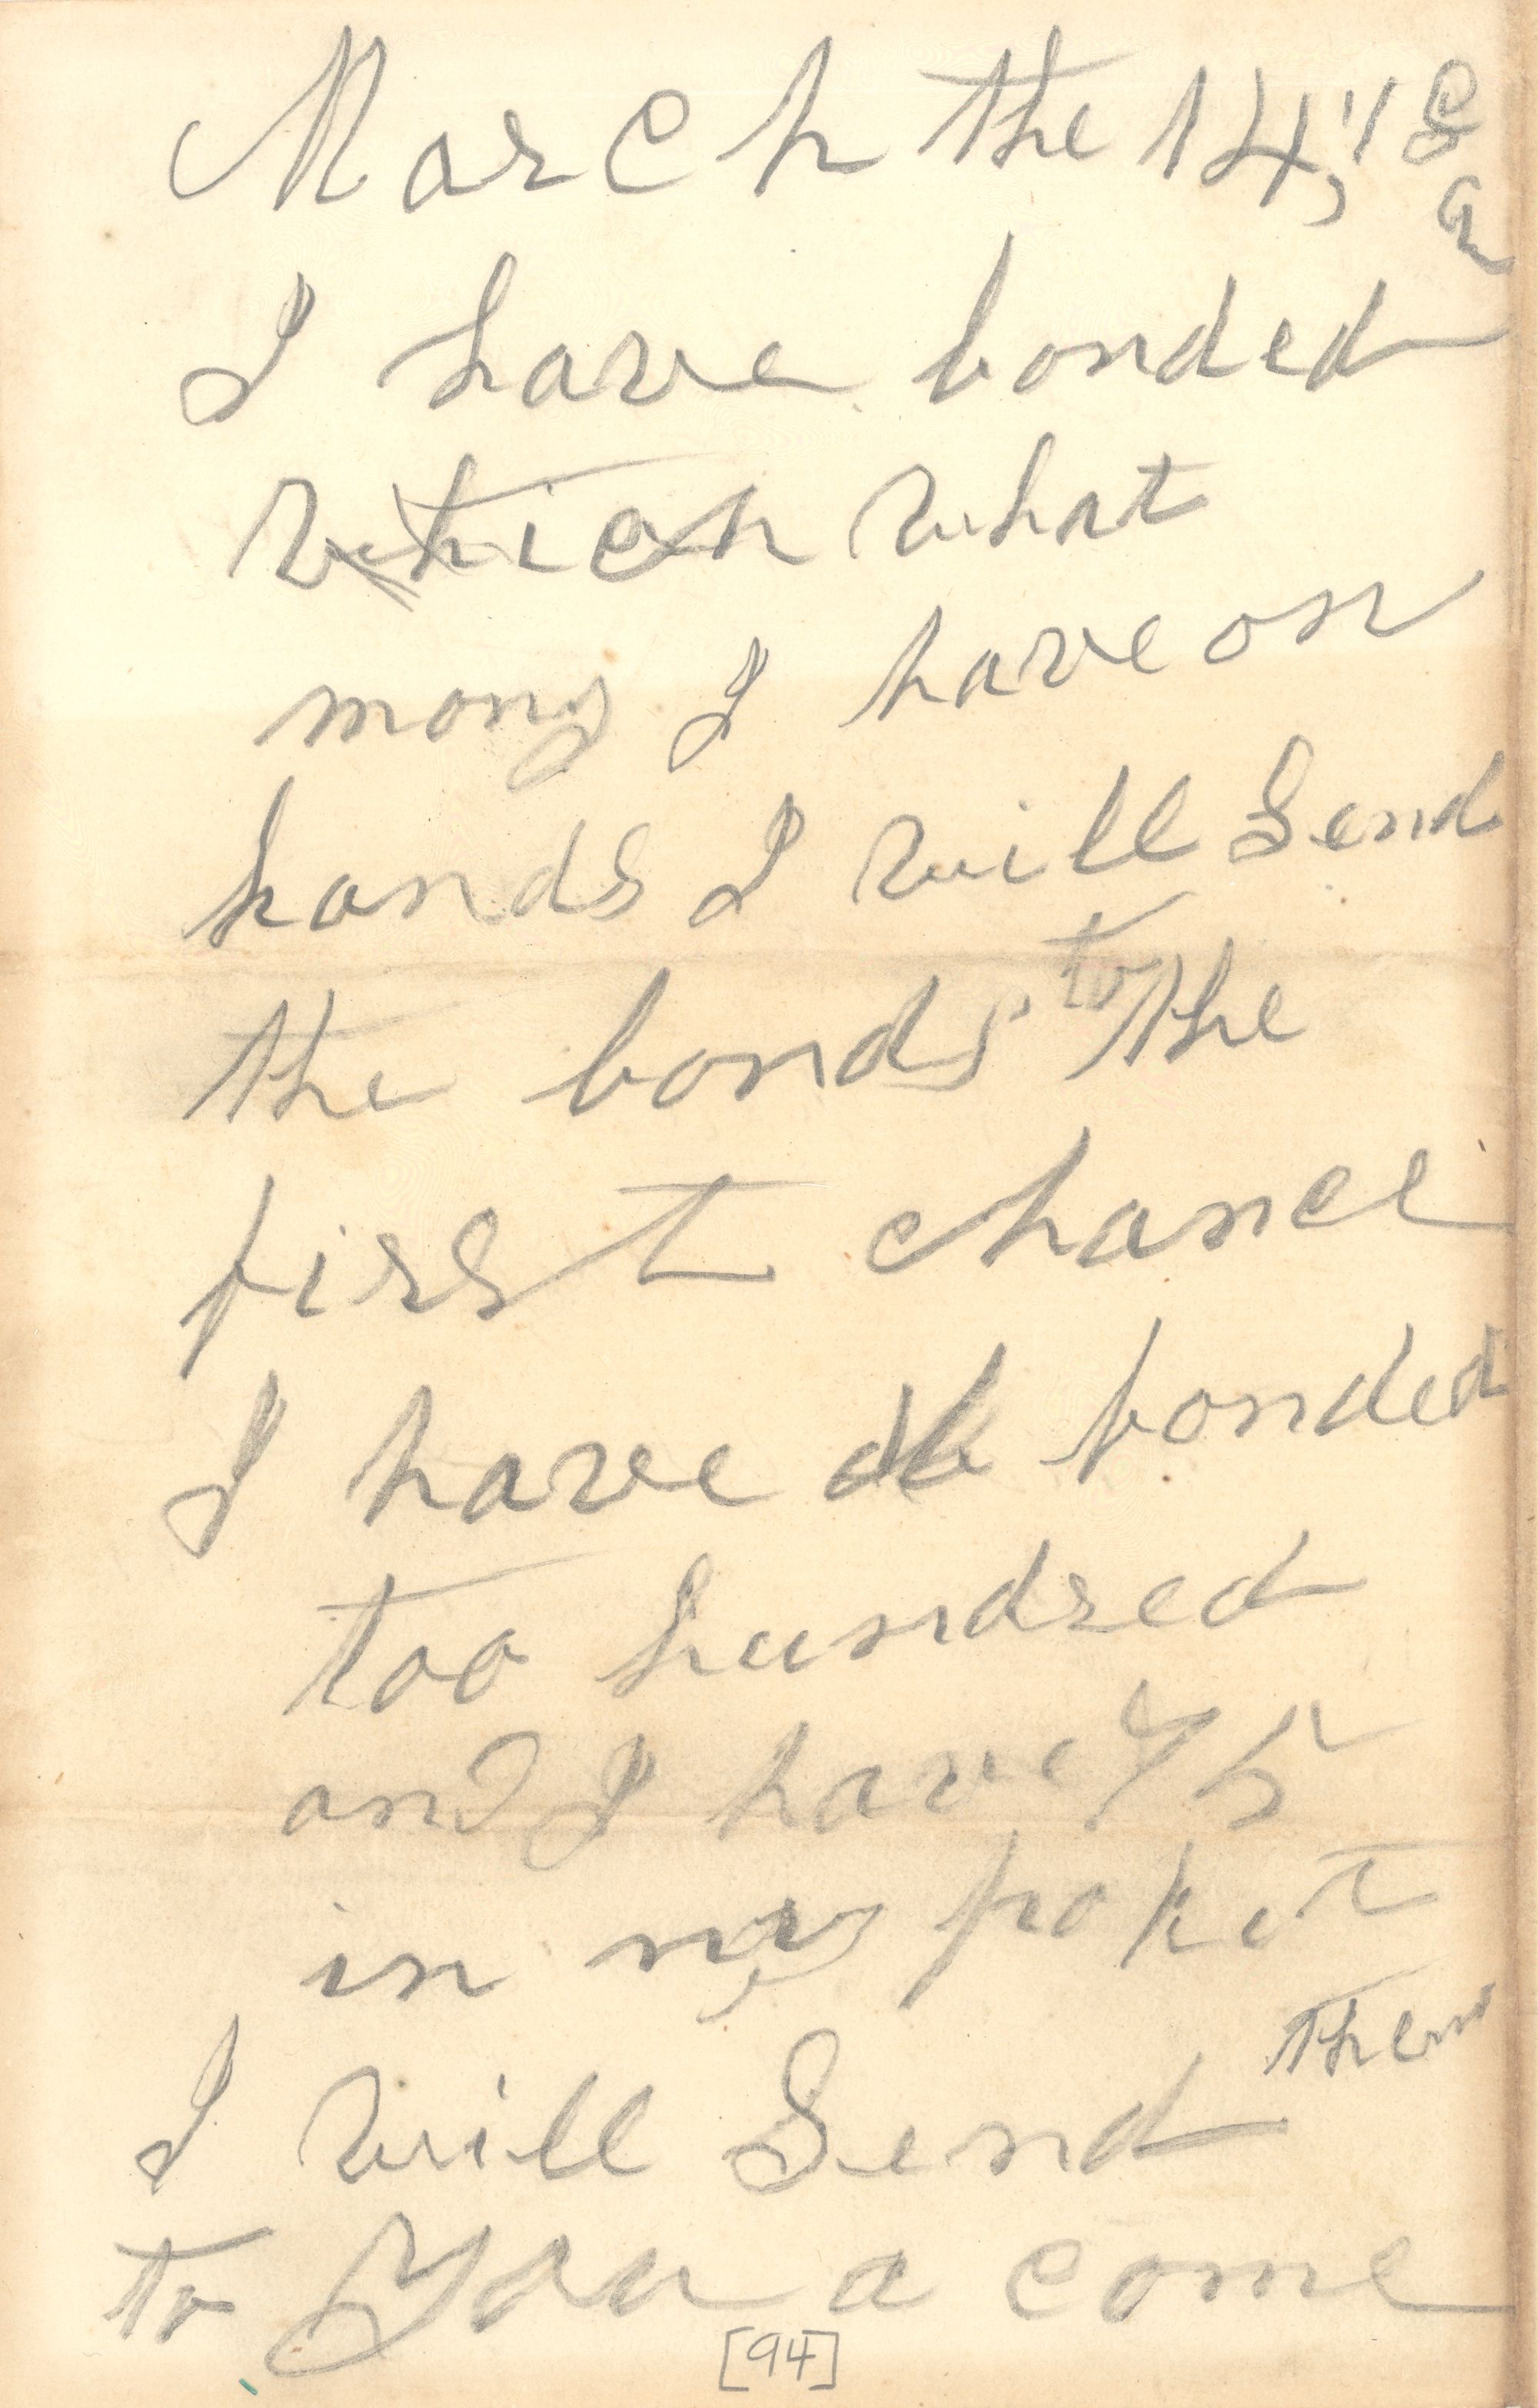 March the 14, 186
I have bonded
which what
mony I have on
hands I will Send
the bonds to the
first chance
I have bonded
too hundred
and I have 75
in my poket
I will Send them
to You a come
[94]